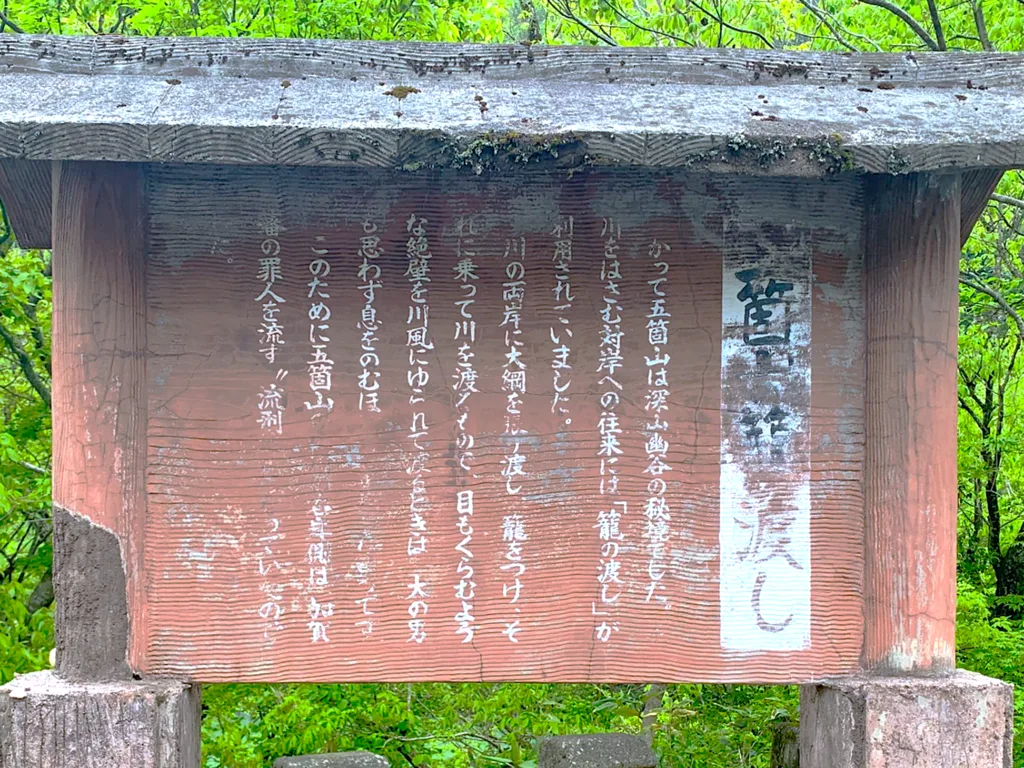 箇山籠渡し
かつて五箇山は深山幽谷の秘境でした。
川をはさむ対岸への往来には「籠の渡し」が
利用されていました。
川の両岸に大綱を張り渡し、籠をつけ、そ
れに乗って川を渡るもので、目もくらむよう
な絶壁を川風にゆられて渡るときは、大の男
も思わず息をのむほ
このために五箇山 は加賀
藩の罪人を流す〝流刑
た。